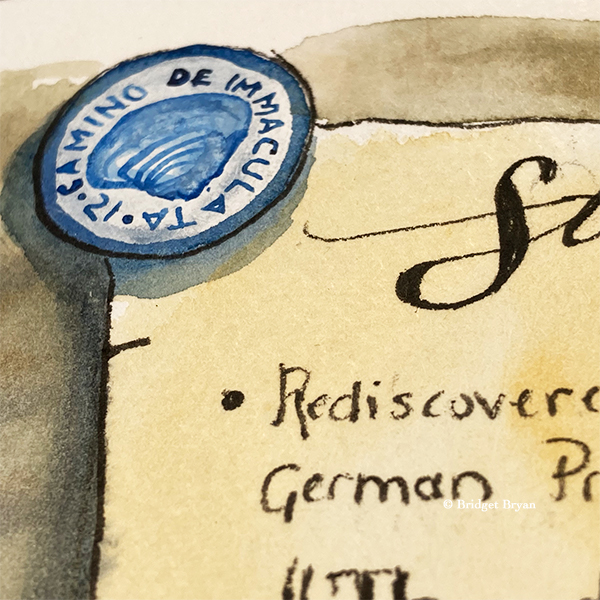 CAMINO DE IMMACULATA • 12 •
• Rediscovere
German Pr
© Bridget Bryan